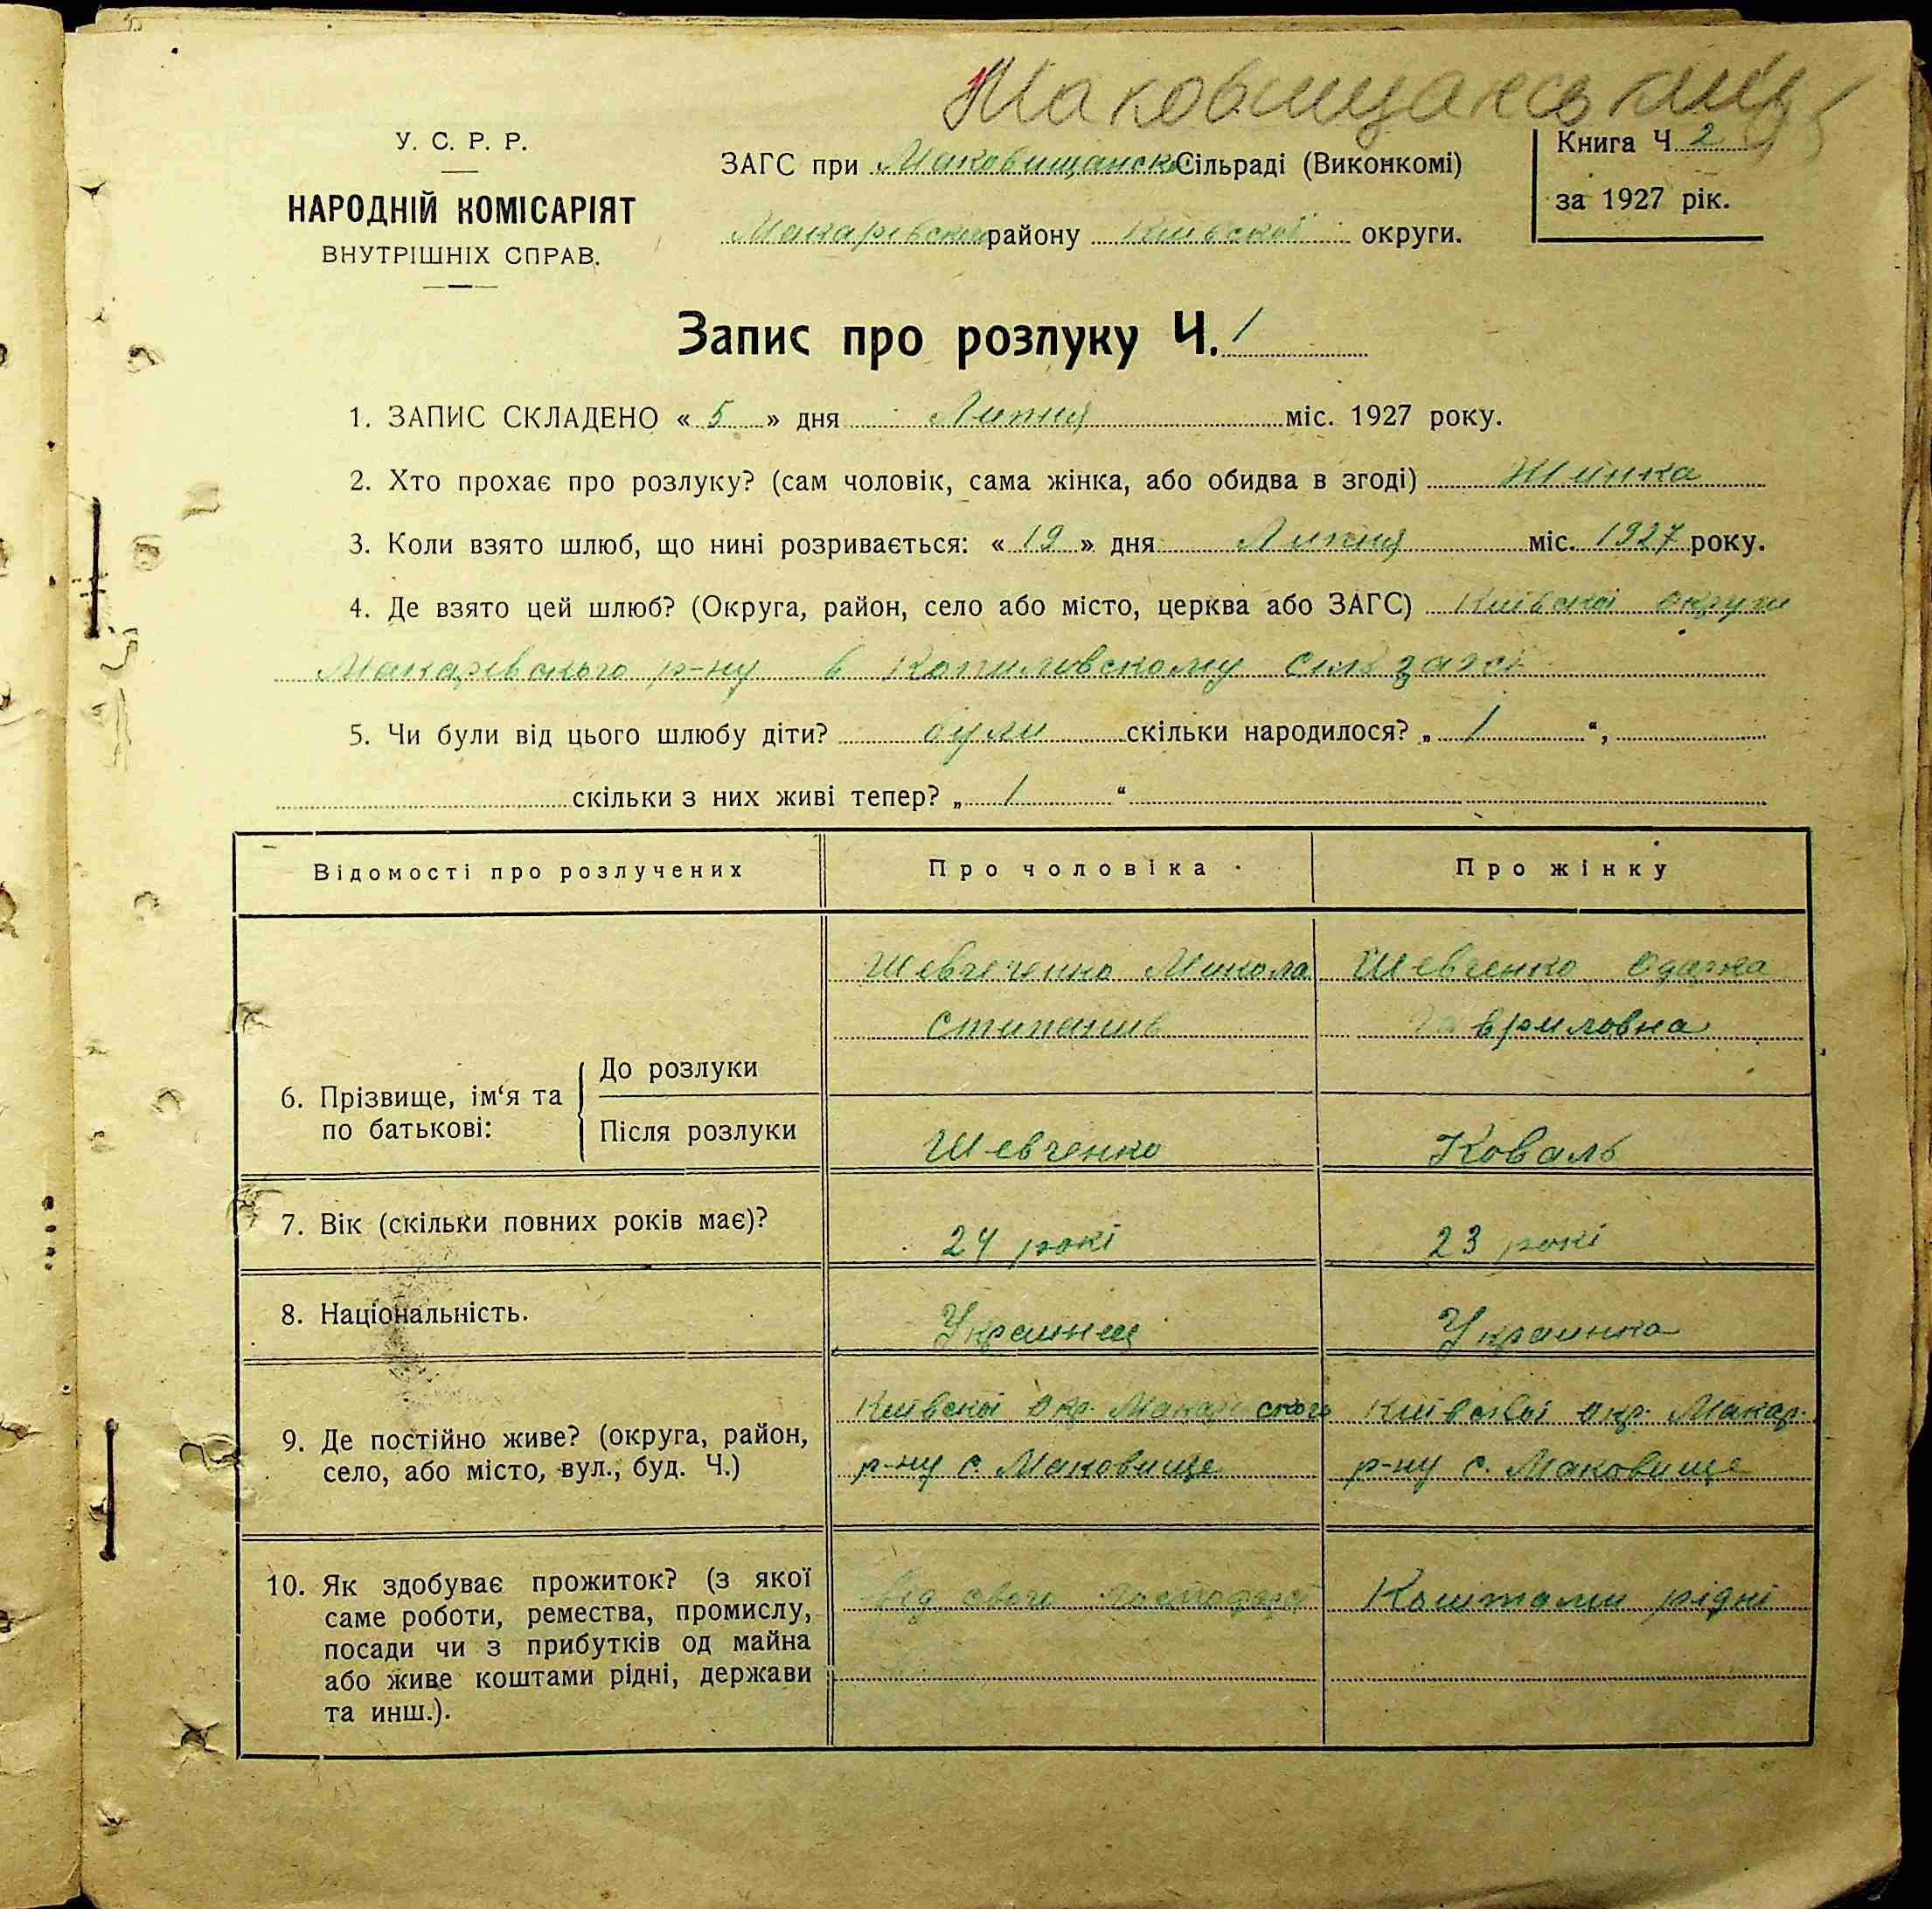 Маковищанський
У. С. Р. Р.
НАРОДНІЙ КОМІСАРІЯТ
ВНУТРІШНІХ СПРАВ.
ЗАГС при Маковищанск Сільраді (Виконкомі)
Макарівском району Київскої округи.
Книга Ч. 2
за 1927 рік.
Запис про розлуку Ч. 1
1. ЗАПИС СКЛАДЕНО « 5 » дня Липня міс. 1927 року.
2. Хто прохає про розлуку? (сам чоловік, сама жінка, або обидва в згоді) Жинка
3. Коли взято шлюб, що нині розривається: « 19 » дня Липня міс. 1927 року.
4. Де взято цей шлюб? (Округа, район, село або місто, церква або ЗАГС) Київскоі округи
Макарівського р-ну в Копиловскому сильзагсі
5. Чи були від цього шлюбу діти? були скільки народилося? „ 1 “,
скільки з них живі тепер? „ 1 “
Відомості про розлучених Про чоловіка Про жінку
Шевченко Микола Шевченко Одарка
Стипанив Гавриловна
6. Прізвище, ім‘я та по батькові: До розлуки
Після розлуки Шевченко Коваль
7. Вік (скільки повних років має)? 24 рокі 23 рокі
8. Національність. Украинец Украинка
9. Де постійно живе? (округа, район, Київскоі окр. Макарівского Київскоі окр. Макар.
село, або місто, вул., буд. Ч.) р-ну с. Маковище р-ну с. Маковище
10. Як здобуває прожиток? (з якої від свого Коштами рідні
саме роботи, ремества, промислу,
посади чи з прибутків од майна
або живе коштами рідні, держави
та инш.).